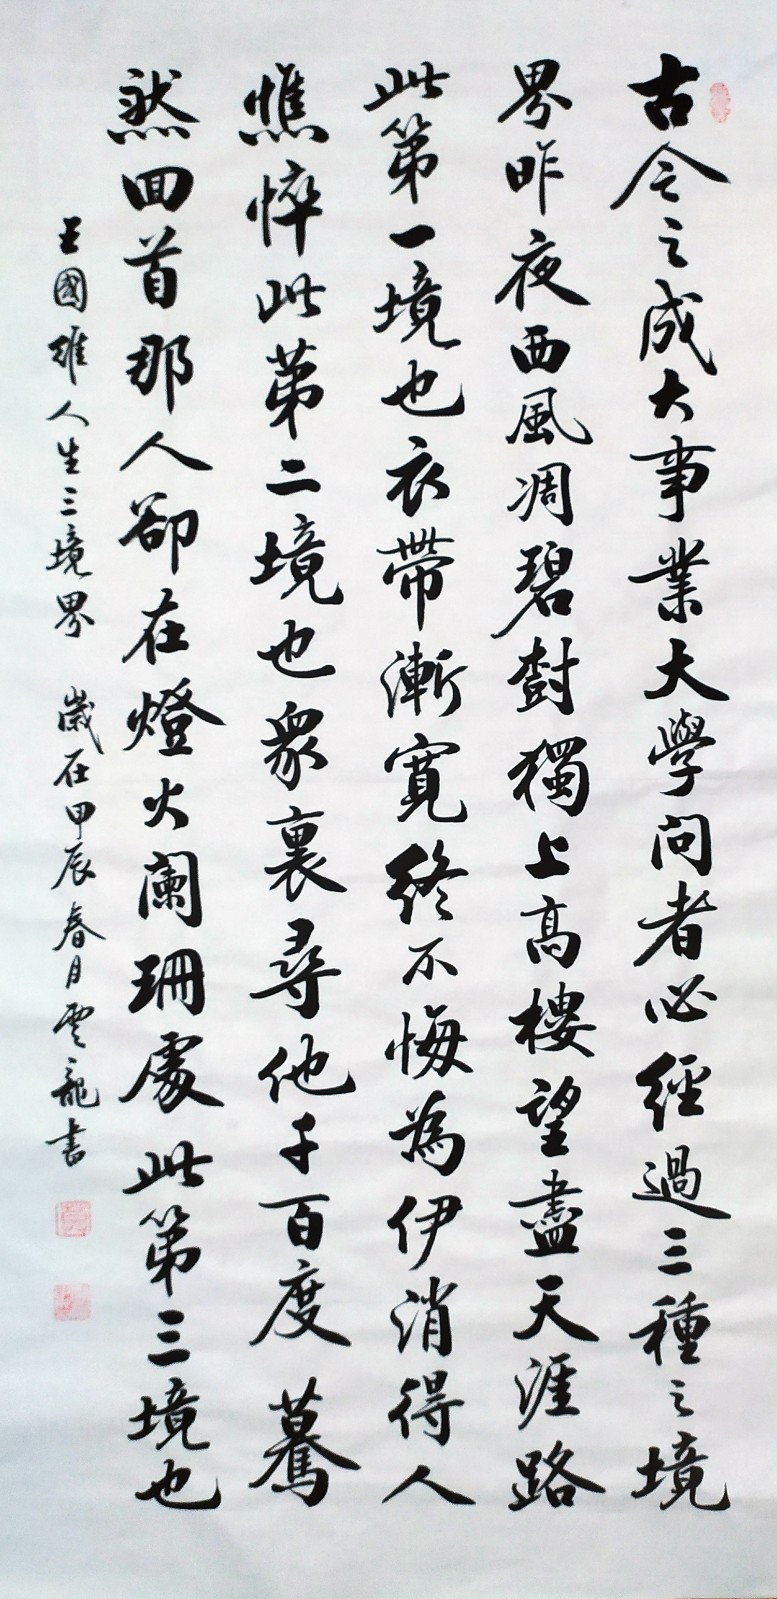 古今之成大事業大學问者必經過三種之境
界昨夜西風凋碧樹獨上高樓望盡天涯路
此第一境也衣帶漸寬終不悔為伊消得人
憔悴此第二境也衆裏尋他千百度驀
然回首那人卻在燈火闌珊處此第三境也
王國維人生三境界 歲在甲辰春月雲龍書